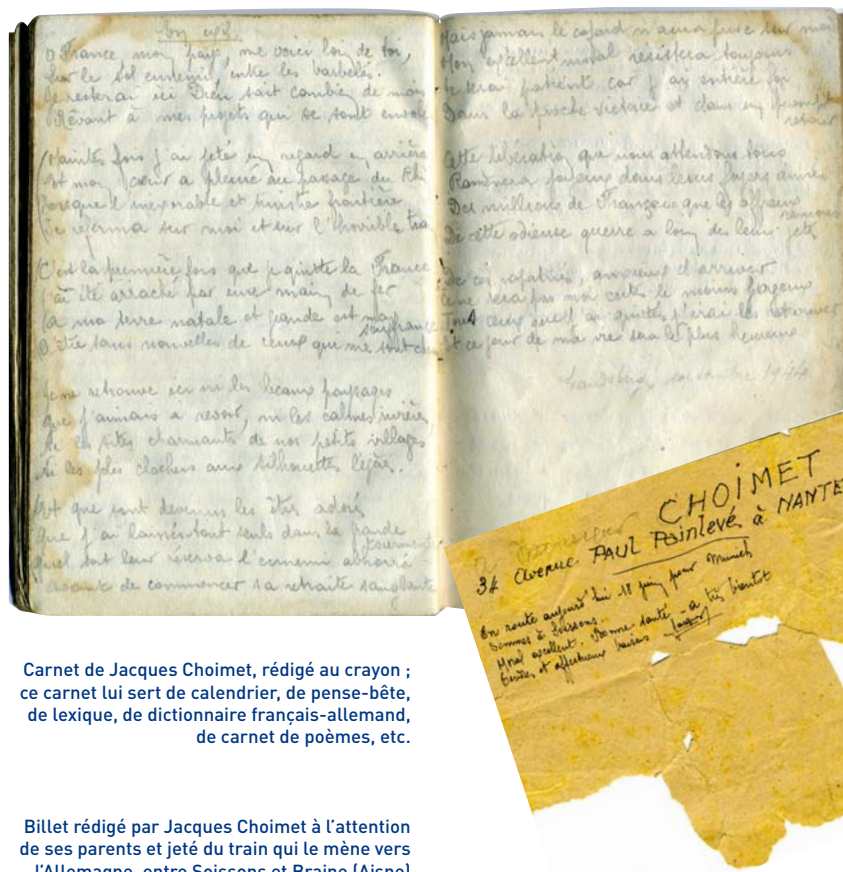 En exil
O France, mon pays, me voici loin de toi,
Sur le sol ennemi, entre les barbelés.
Je resterai ici Dieu sait combien de mois
Rêvant à mes projets qui se sont envolé
Maintes fois j'ai jeté un regard en arrière
Et mon cœur a pleuré au passage du Rhi
Lorsque l'inexorable et sinistre frontière
Se referma sur moi et sur l'horrible tra
C'est la première fois que je quitte la France
J'ai été arraché par une main de fer
à ma terre natale et grande est ma souffrance
D'être sans nouvelles de ceux qui me sont che
Je ne retrouve ici ni les beaux paysages
que j'aimais à revoir, ni les calmes rivières
Ni les sites charmants de nos petits villages
Ni les clochers aux silhouettes légères.
Et que sont devenus les êtres adorés
Que j'ai laissés tout seuls dans la grande tourmente
quel sort leur réserva l'ennemi abhorré
avant de commencer sa retraite sanglante
Mais jamais le cafard n'aura prise sur moi
Mon excellent moral résistera toujours
Je serai patient car j'ai entière foi
Dans la proche victoire et dans un prompt retour
Cette libération que nous attendons tous
Ramènera joyeux dans leurs foyers
Des millions de Français que les affreux remous
De cette odieuse guerre a loin de leur jeté
De ces rapatriés, anxieux d'arriver
Ce ne sera pas moi certes le moins
Tous ceux que j'ai quittés j'irai les retrouver
Et ce jour de ma vie sera le plus heureux
Landsberg, novembre 1944
Monsieur CHOIMET
34 avenue PAUL Painlevé à NANTE
En route aujourd'hui 18 juin pour Munich
Sommes à Soissons.
Moral excellent. Bonne santé - à très bientôt
et affectueux baisers Jacques
Carnet de Jacques Choimet, rédigé au crayon ;
ce carnet lui sert de calendrier, de pense-bête,
de lexique, de dictionnaire français-allemand,
de carnet de poèmes, etc.
Billet rédigé par Jacques Choimet à l'attention
de ses parents et jeté du train qui le mène vers
l'Allemagne, entre Soissons et Braine (Aisne)